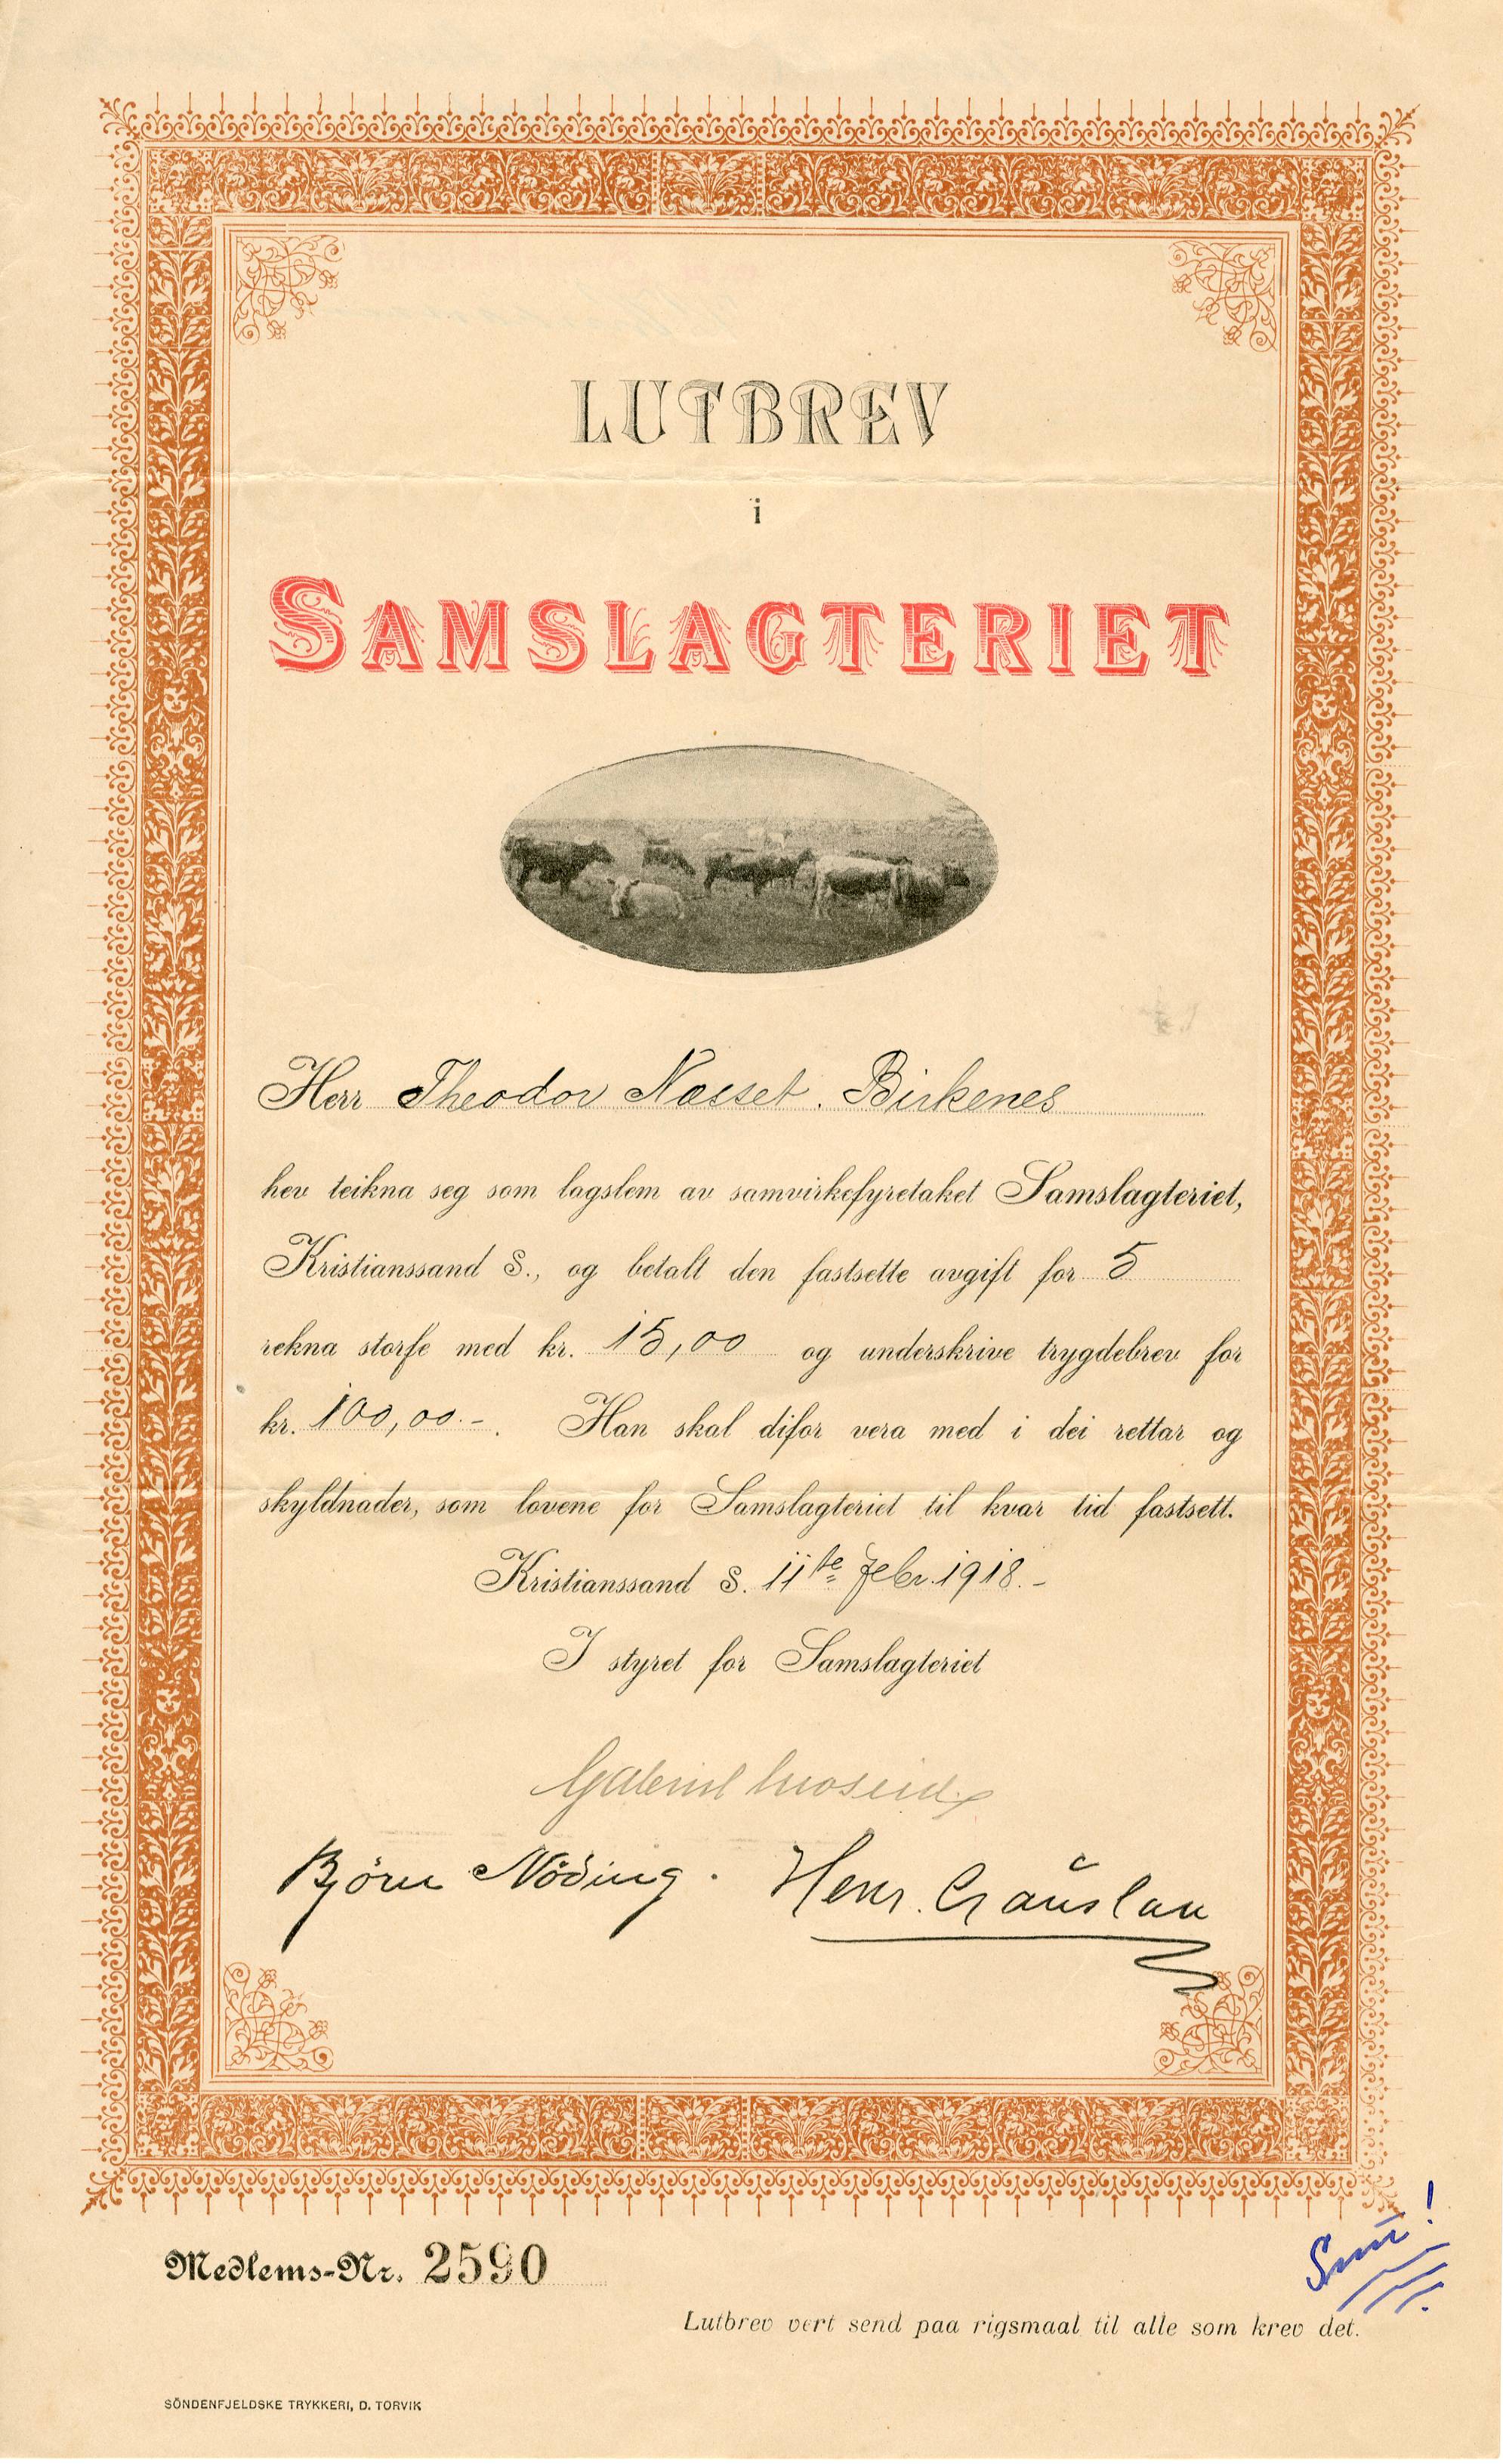 LUTBREV
i
SAMSLAGTERIET
Herr Theodor Næsset. Birkenes
hev teikna seg som lagslem av samvirkefyretaket Samslagteriet,
Kristianssand S., og betalt den fastsette avgift for 5
rekna storfe med kr. 15,00 og underskrive trygdebrev for
kr. 100,00.-. Han skal difor vera med i dei rettar og
skyldnader, som lovene for Samslagteriet til kvar tid fastsett.
Kristianssand S. 11te Febr. 1918.-
I styret for Samslagteriet
Björn Nöding. Henr.
Medlems-Nr. 2590
Lutbrev vert send paa rigsmaal til alle som krev det.
SÖNDENFJELDSKE TRYKKERI, D. TORVIK